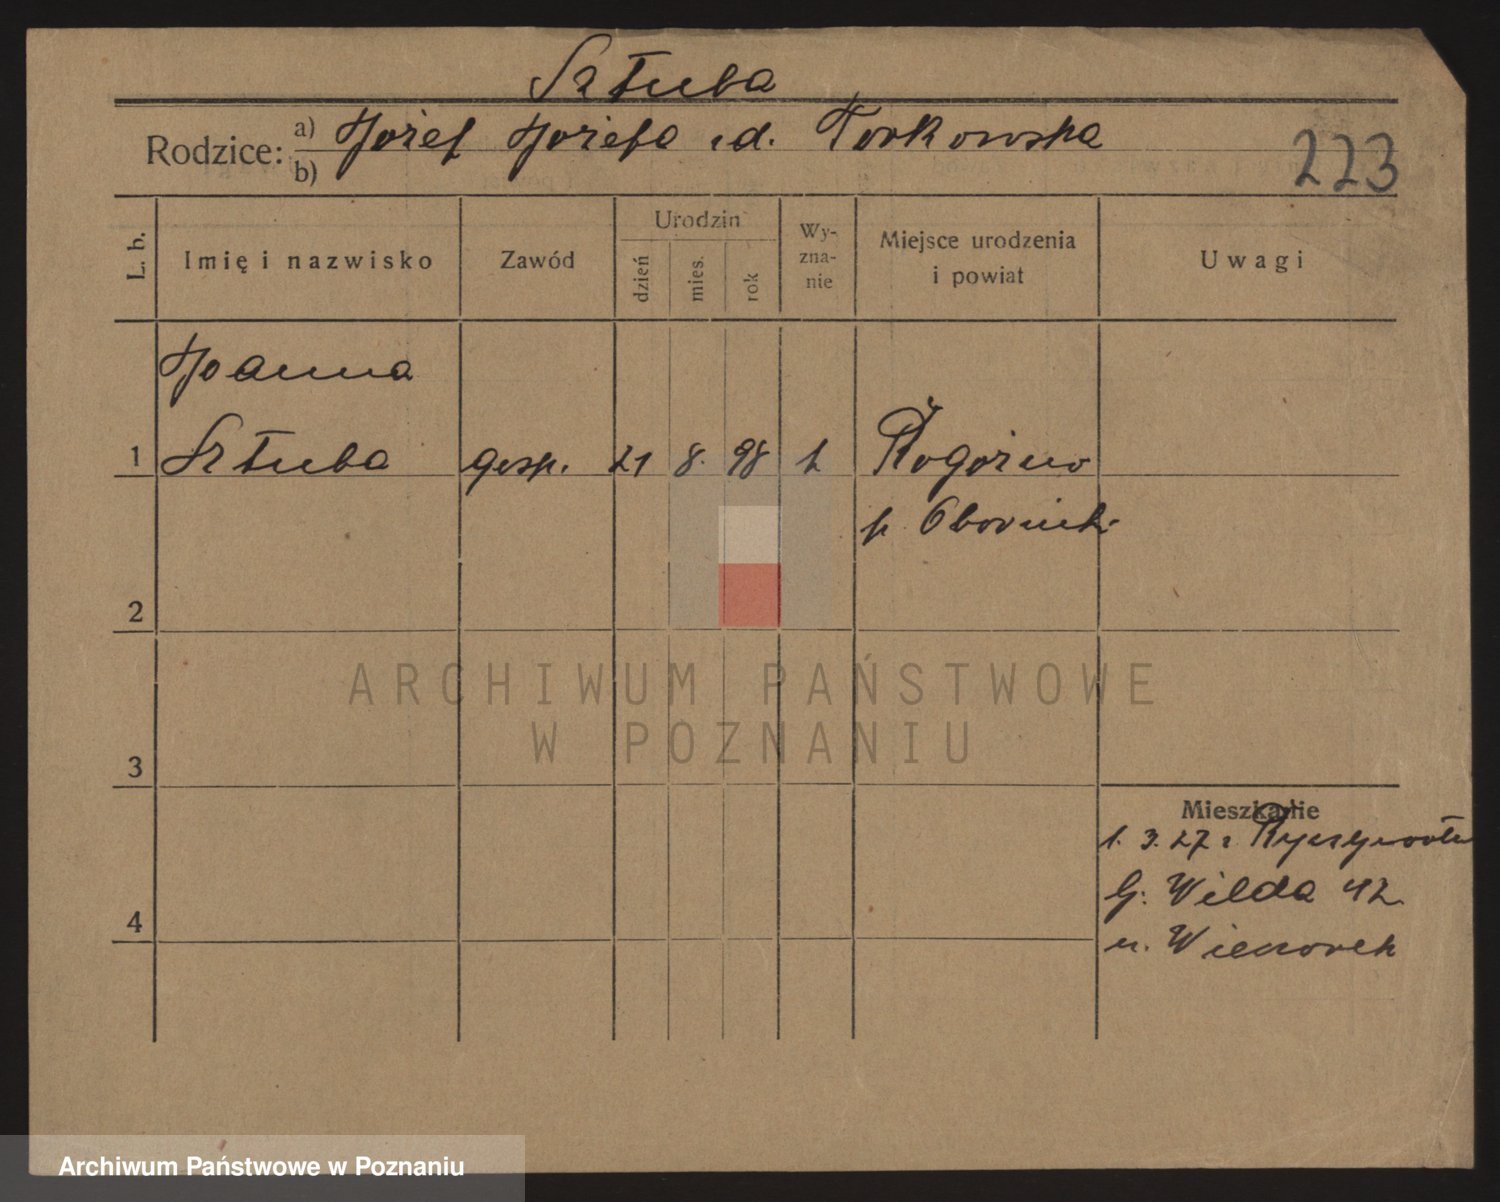 Sztuba
Rodzice: a) Józef Józefa z d. Torkowska
b)
223
L. b. Imię i nazwisko Zawód Urodzin dzień mies. rok Wy-zna-nie Miejsce urodzenia i powiat Uwagi
Joanna
1 Sztuba gosp. 21 8. 98 k Rogoźno
p. Oborniki
2
ARCHIWUM PAŃSTWOWE
W POZNANIU
3
Mieszkanie
1. 3. 27 z Ryczywołu
G. Wilda 42
u. Wieczorek
4
Archiwum Państwowe w Poznaniu